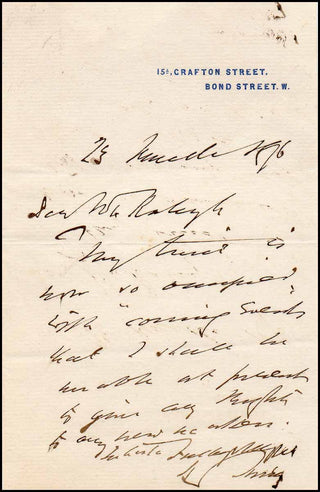 15A, GRAFTON STREET,
BOND STREET. W.
23 March 1896
Dear Mr Raleigh
My time is
now so occupied
with "coming Events"
that I shall be
unable at present
to give any thought
to any new